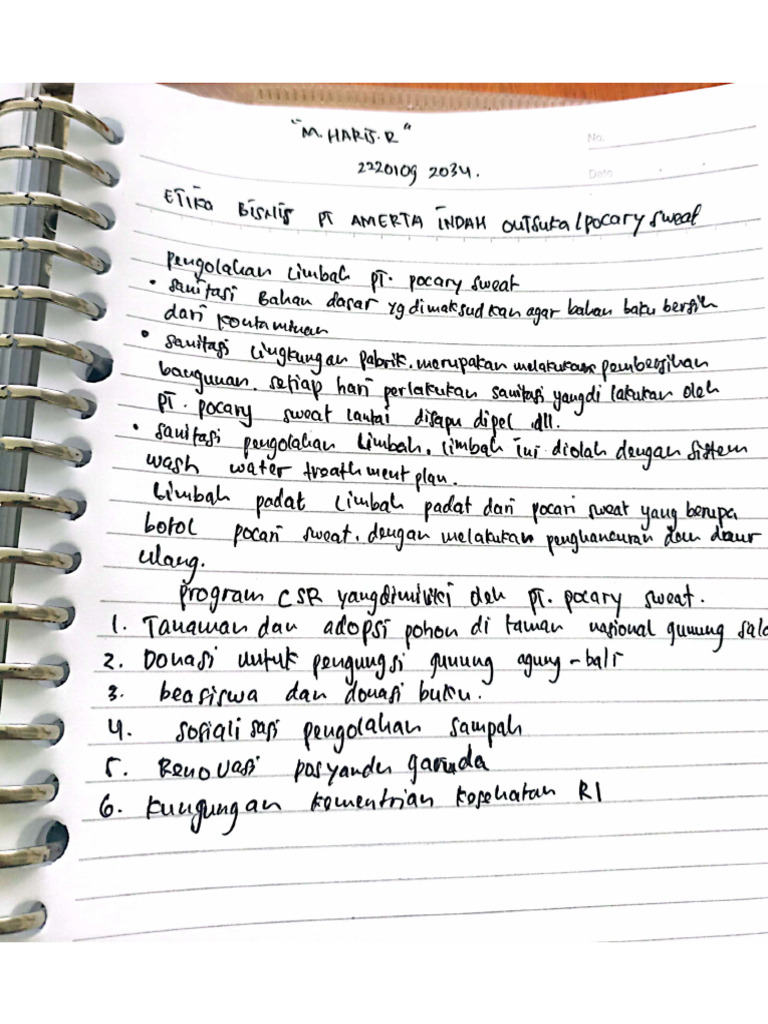 "M. HARIS. R"
No.
2220109 2034.
Date
ETIKA BISNIS PT AMERTA INDAH OUTSUKA / pocary sweat
pengolahan Limbah pt. pocary sweat
• sanitasi Bahan dasar yg dimaksudkan agar bahan baku bersih
dari kontaminan
• sanitasi Lingkungan pabrik. merupakan melakukan pembersihan
bangunan. setiap hari perlakukan sanitasi yang di lakukan oleh
PT. pocary sweat lantai disapu dipel dll.
• sanitasi pengolahan Limbah. Limbah ini diolah dengan sistem
wash water treathment plan.
Limbah padat Limbah padat dari pocari sweat yang berupa
botol pocari sweat. dengan melakukan penghancuran dan daur
ulang.
program CSR yang dimiliki oleh pt. pocary sweat.
1. Tanaman dan adopsi pohon di taman nasional gunung sala
2. Donasi untuk pengungsi gunung agung - bali
3. beasiswa dan donasi buku.
4. sosialisasi pengolahan sampah
5. Renovasi posyandu garuda
6. kungungan kementrian kesehatan RI